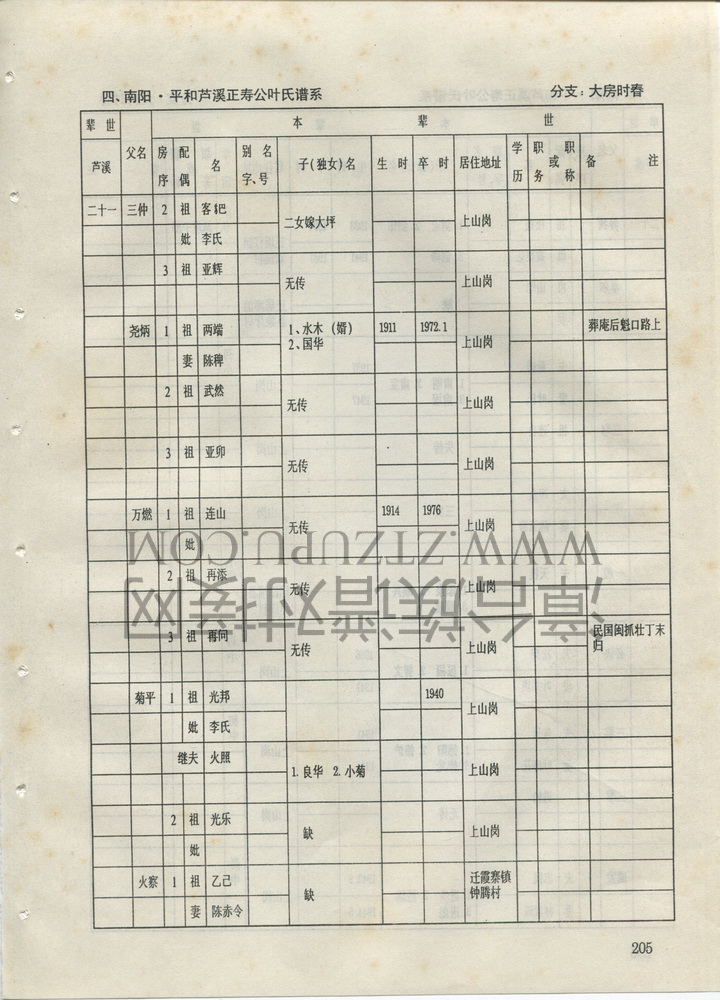 四、南阳·平和芦溪正寿公叶氏谱系 分支：大房时春
辈世 本 辈 世
芦溪 父名 房序 配偶 名 别名字、号 子（独女）名 生时 卒时 居住地址 学历 职务或职称 备注
二十一 三仲 2 祖 客 二女嫁大坪 上山岗
妣 李氏
3 祖 亚辉 无传 上山岗
尧炳 1 祖 两端 1、水木（婿） 1911 1972.1 上山岗 葬庵后魁口路上
妻 陈稗 2、国华
2 祖 武然 无传 上山岗
3 祖 亚卯 无传 上山岗
万燃 1 祖 连山 无传 1914 1976 上山岗
妣
2 祖 再添 无传 上山岗
3 祖 再问 无传 上山岗 民国闽抓壮丁末归
菊平 1 祖 光邦 1940 上山岗
妣 李氏
继夫 火照 1.良华 2.小菊 上山岗
2 祖 光乐 缺 上山岗
妣
火察 1 祖 乙己 缺 迁霞寨镇钟腾村
妻 陈赤令
205
WWW.ZTZUPU.COM
漳台族谱对接网